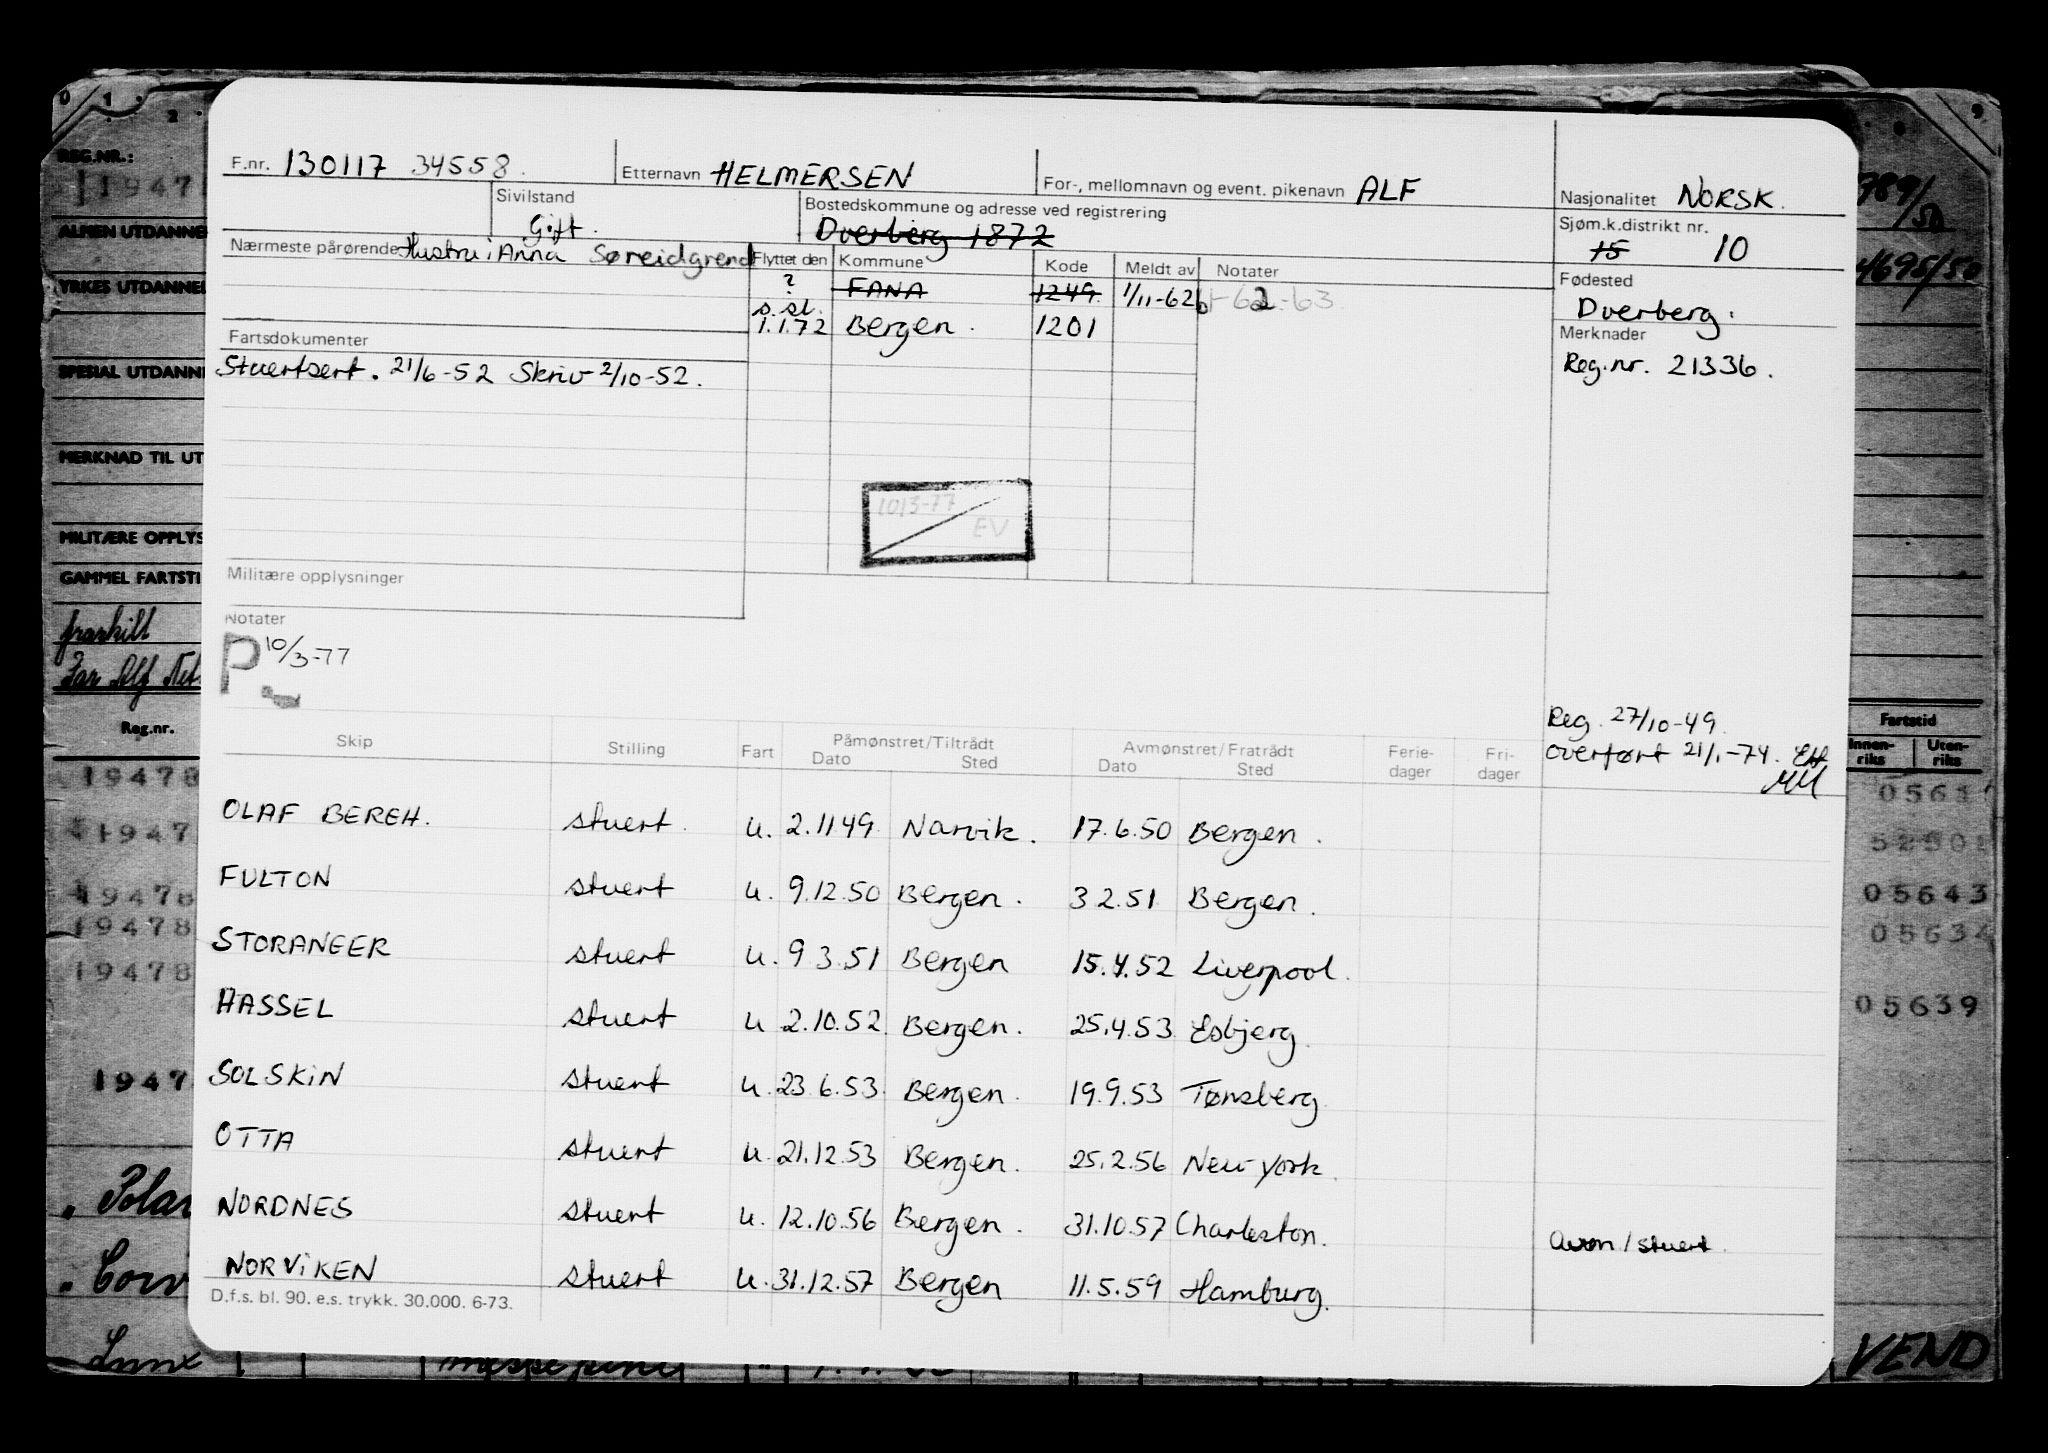 F.nr. 130117 34558. Etternavn HELMERSEN For-, mellomnavn og event. pikenavn ALF Nasjonalitet NORSK.
Sivilstand Gift. Bostedskommune og adresse ved registrering Dverberg 1872 Sjøm.k.distrikt nr. 15 10
Nærmeste pårørende Hustru: Anna Søreidgrend
Flyttet den Kommune Kode Meldt av Notater
? FANA 1249. 1/11-62
s.st.
1.1.72 Bergen. 1201
Fødested
Dverberg.
Merknader
Reg.nr. 21336.
Fartsdokumenter
Stuertsert. 21/6-52 Skriv 2/10-52.
1013-77
EV
Militære opplysninger
Notater
P 10/3-77
Reg. 27/10-49.
overført 21/1-74.
Skip Stilling Fart Påmønstret/Tiltrådt Dato Sted Avmønstret/Fratrådt Dato Sted Ferie-dager Fri-dager
OLAF BEREH. stuert. u. 2.11 49. Narvik. 17.6.50 Bergen.
FULTON stuert u. 9.12.50 Bergen. 3 2.51. Bergen.
STORANGER stuert u. 9 3.51 Bergen 15.4.52 Liverpool.
HASSEL stuert u 2.10.52. Bergen. 25.4.53 Esbjerg.
SOLSKIN stuert u. 23.6.53. Bergen. 19.9.53 Tønsberg.
OTTA stuert u. 21.12.53 Bergen. 25.2.56 New-York.
NORDNES stuert u. 12.10.56 Bergen. 31.10.57 Charleston. / stuert.
NORVIKEN stuert u. 31.12.57 Bergen 11.5.59 Hamburg.
D.f.s. bl. 90. e.s. trykk. 30.000. 6-73.
REG.NR.:
1947
ALMEN UTDANNE
YRKES UTDANNEL
SPESIAL UTDANN
MERKNAD TIL UT
MILITÆRE OPPLYS
GAMMEL FARTSTI
Reg.nr.
19478
1947
19478
19478
19478
1947
789/50
4695/50
Fartstid
Innen-riks Uten-riks
0561
05643
05634
05639
VEND